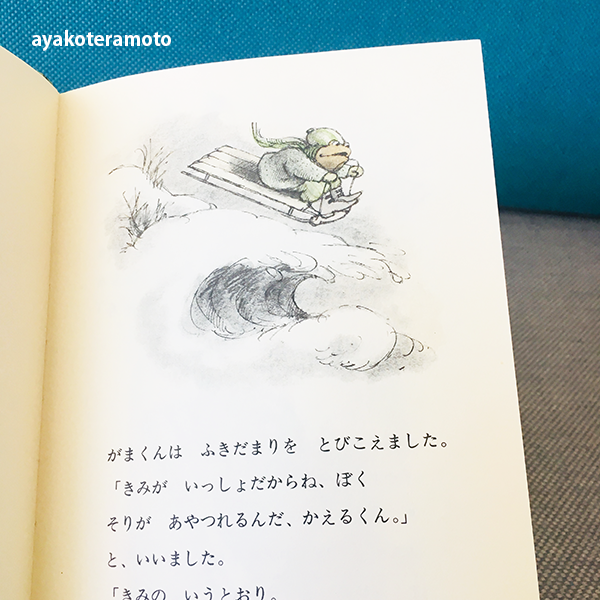 ayakoteramoto
がまくんは　ふきだまりを　とびこえました。
「きみが　いっしょだからね、ぼく
そりが　あやつれるんだ、かえるくん。」
と、いいました。
「きみの　いうとおり。